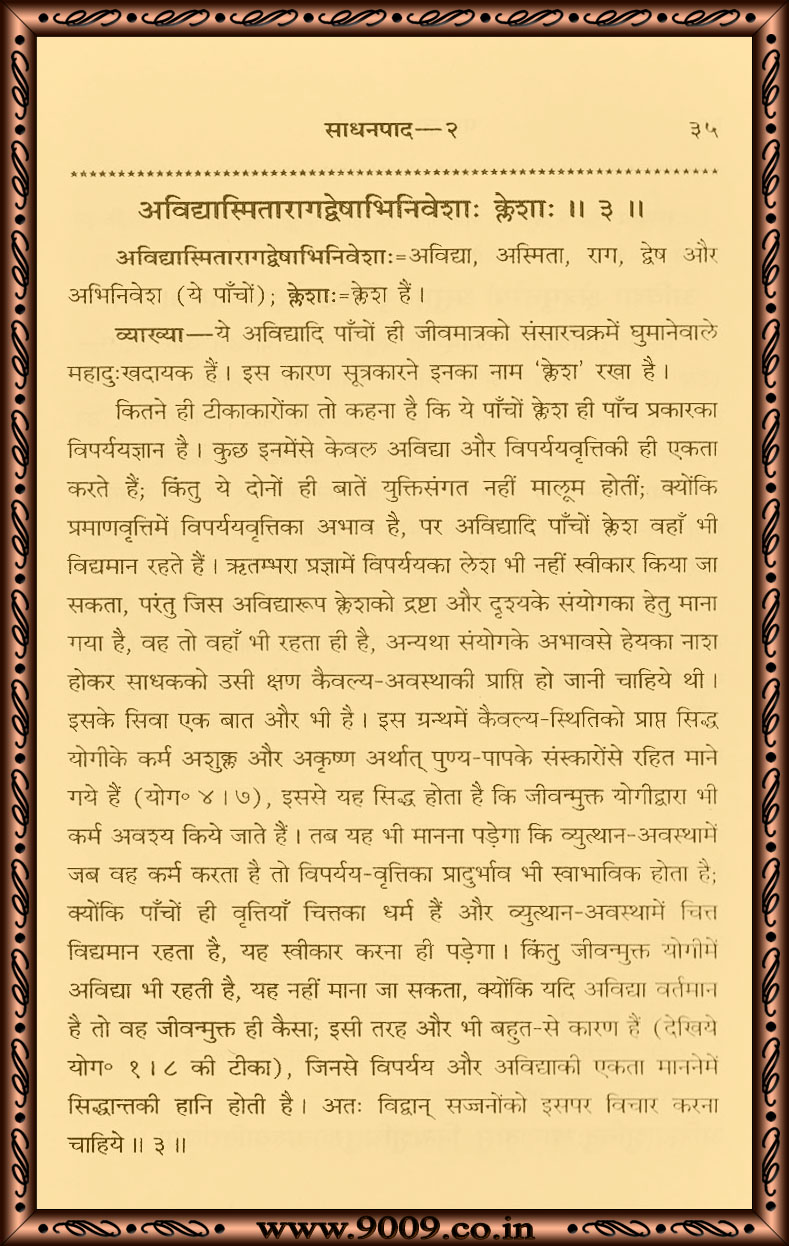 साधनपाद—२ ३५
अविद्यास्मितारागद्वेषाभिनिवेशाः क्लेशाः ॥ ३ ॥
अविद्यास्मितारागद्वेषाभिनिवेशाः=अविद्या, अस्मिता, राग, द्वेष और
अभिनिवेश (ये पाँचों); क्लेशाः=क्लेश हैं।
व्याख्या—ये अविद्यादि पाँचों ही जीवमात्रको संसारचक्रमें घुमानेवाले
महादुःखदायक हैं। इस कारण सूत्रकारने इनका नाम ‘क्लेश’ रखा है।
कितने ही टीकाकारोंका तो कहना है कि ये पाँचों क्लेश ही पाँच प्रकारका
विपर्ययज्ञान है। कुछ इनमेंसे केवल अविद्या और विपर्ययवृत्तिकी ही एकता
करते हैं; किंतु ये दोनों ही बातें युक्तिसंगत नहीं मालूम होतीं; क्योंकि
प्रमाणवृत्तिमें विपर्ययवृत्तिका अभाव है, पर अविद्यादि पाँचों क्लेश वहाँ भी
विद्यमान रहते हैं। ऋतम्भरा प्रज्ञामें विपर्ययका लेश भी नहीं स्वीकार किया जा
सकता, परंतु जिस अविद्यारूप क्लेशको द्रष्टा और दृश्यके संयोगका हेतु माना
गया है, वह तो वहाँ भी रहता ही है, अन्यथा संयोगके अभावसे हेयका नाश
होकर साधकको उसी क्षण कैवल्य-अवस्थाकी प्राप्ति हो जानी चाहिये थी।
इसके सिवा एक बात और भी है। इस ग्रन्थमें कैवल्य-स्थितिको प्राप्त सिद्ध
योगीके कर्म अशुक्ल और अकृष्ण अर्थात् पुण्य-पापके संस्कारोंसे रहित माने
गये हैं (योग० ४।७), इससे यह सिद्ध होता है कि जीवन्मुक्त योगीद्वारा भी
कर्म अवश्य किये जाते हैं। तब यह भी मानना पड़ेगा कि व्युत्थान-अवस्थामें
जब वह कर्म करता है तो विपर्यय-वृत्तिका प्रादुर्भाव भी स्वाभाविक होता है;
क्योंकि पाँचों ही वृत्तियाँ चित्तका धर्म हैं और व्युत्थान-अवस्थामें चित्त
विद्यमान रहता है, यह स्वीकार करना ही पड़ेगा। किंतु जीवन्मुक्त योगीमें
अविद्या भी रहती है, यह नहीं माना जा सकता, क्योंकि यदि अविद्या वर्तमान
है तो वह जीवन्मुक्त ही कैसा; इसी तरह और भी बहुत-से कारण हैं (देखिये
योग० १।८ की टीका), जिनसे विपर्यय और अविद्याकी एकता माननेमें
सिद्धान्तकी हानि होती है। अतः विद्वान् सज्जनोंको इसपर विचार करना
चाहिये॥ ३॥
www.9009.co.in